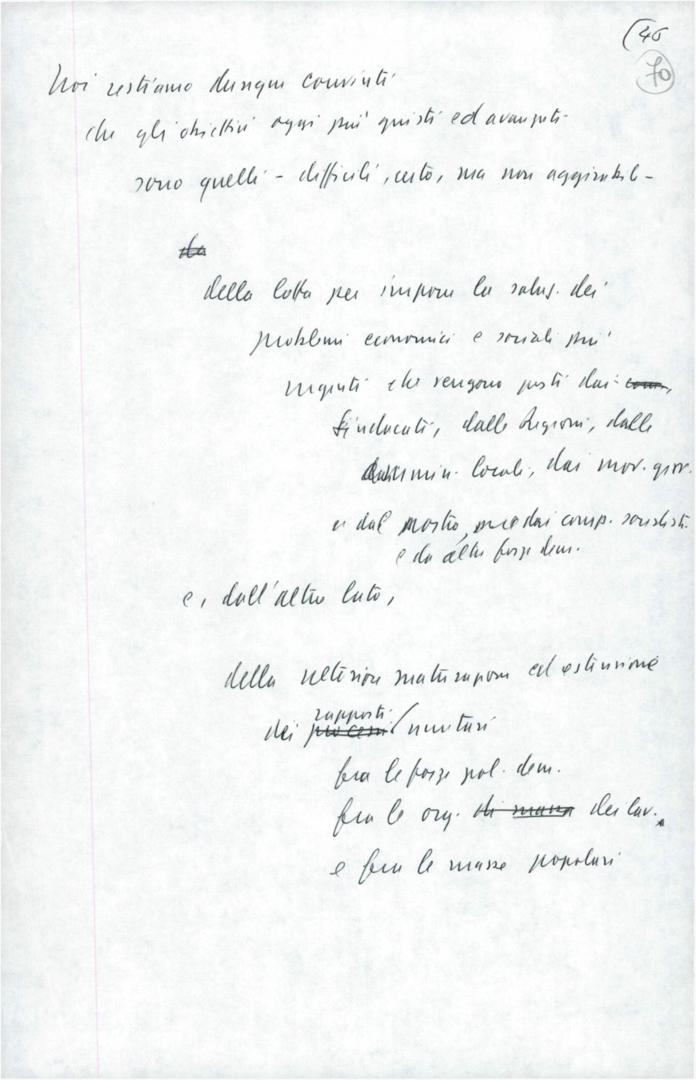 (46
70
Noi restiamo dunque convinti
che gli obiettivi oggi più giusti ed avanzati
sono quelli - difficili, certo, ma non aggirabili -
della lotta per imporre la soluz. dei
problemi economici e sociali più
urgenti che vengono posti dai
Sindacati, dalle Regioni, dalle
ammin. locali, dai mov. giov.
e dal nostro, e dai comp. socialisti
e da altre forze dem.
e, dall'altro lato,
della ulteriore maturazione ed estensione
rapporti
dei processi unitari
fra le forze pol. dem.
fra le org. di massa dei lav.
e fra le masse popolari